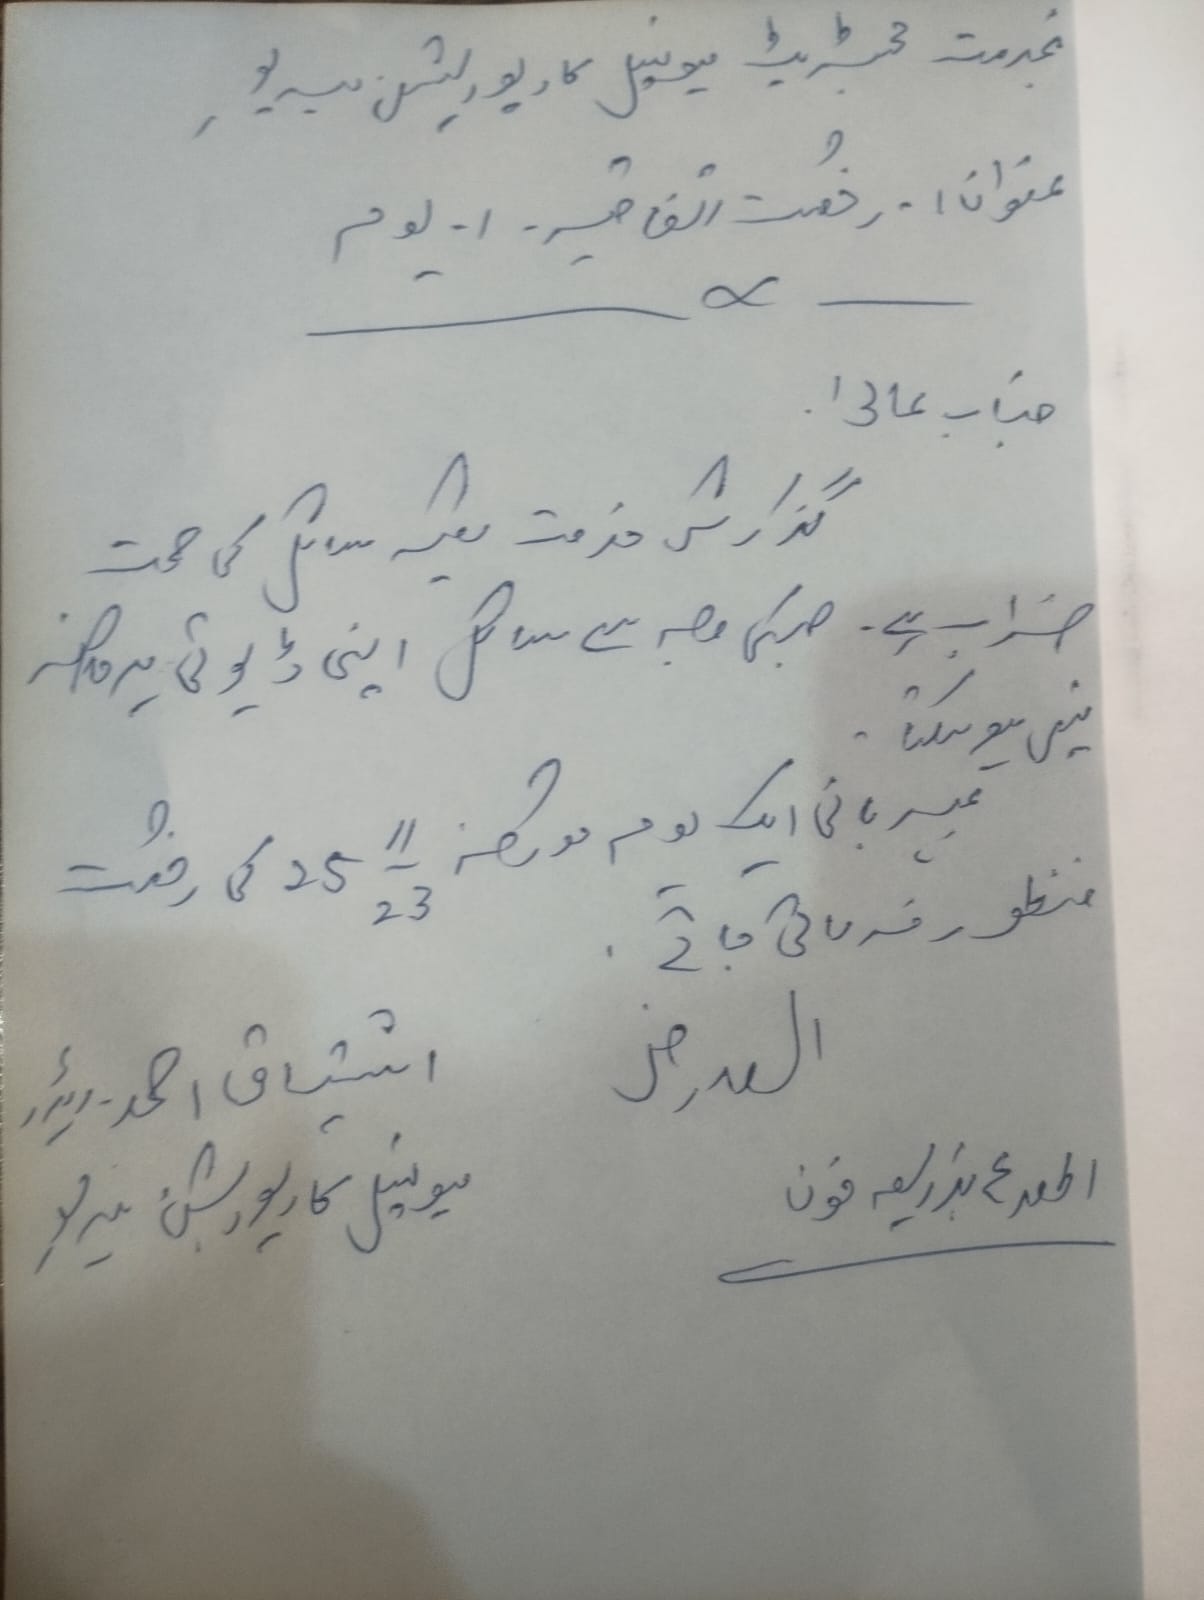 بخدمت مجسٹریٹ میونسپل کارپوریشن میرپور
عنوان :- رخصت اتفاقیہ - 1 - یوم
جناب عالی!
گذارش خدمت ہیکہ سائل کی صحت
خراب ہے۔ جسکی وجہ سے سائل اپنی ڈیوٹی پر حاضر
نہیں ہو سکتا۔
مہربانی ایک یوم مورخہ 25 11/23 کی رخصت
منظور فرمائی جائے۔
العارض
اشتیاق احمد - ریڈر
میونسپل کارپوریشن میرپور
اطلاع بذریعہ فون